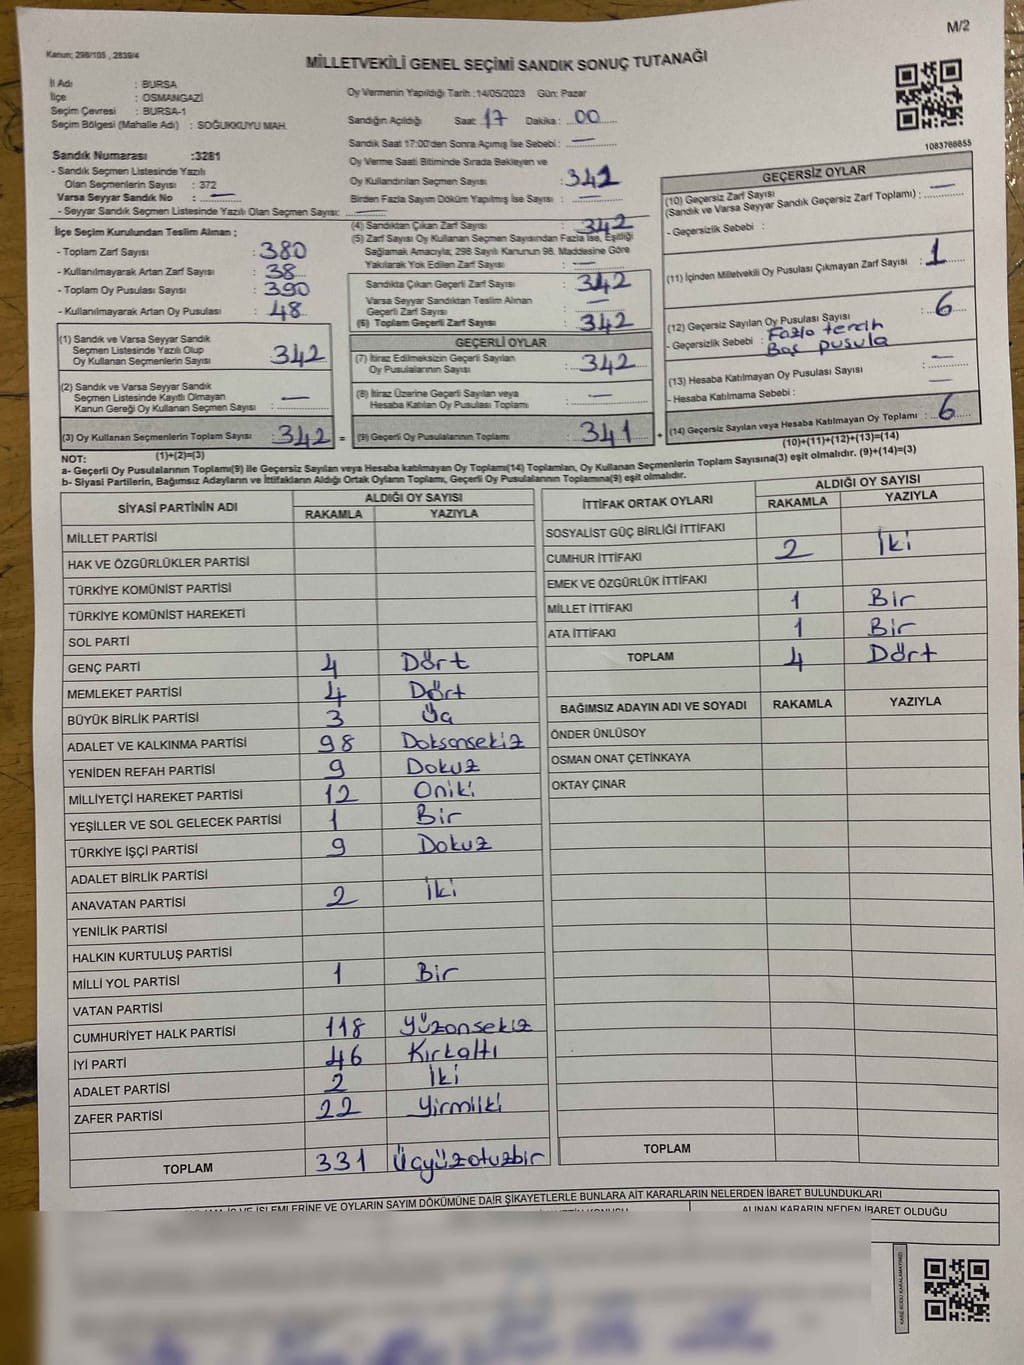 M/2
Kanun; 298/105 , 2839/4
MİLLETVEKİLİ GENEL SEÇİMİ SANDIK SONUÇ TUTANAĞI
İl Adı : BURSA
İlçe : OSMANGAZİ
Seçim Çevresi : BURSA-1
Seçim Bölgesi (Mahalle Adı) : SOĞUKKUYU MAH.
Sandık Numarası :3281
- Sandık Seçmen Listesinde Yazılı
Olan Seçmenlerin Sayısı : 372
Varsa Seyyar Sandık No : —
- Seyyar Sandık Seçmen Listesinde Yazılı Olan Seçmen Sayısı: —
İlçe Seçim Kurulundan Teslim Alınan ;
- Toplam Zarf Sayısı : 380
- Kullanılmayarak Artan Zarf Sayısı : 38
- Toplam Oy Pusulası Sayısı : 390
- Kullanılmayarak Artan Oy Pusulası : 48
(1) Sandık ve Varsa Seyyar Sandık
Seçmen Listesinde Yazılı Olup
Oy Kullanan Seçmenlerin Sayısı : 342
(2) Sandık ve Varsa Seyyar Sandık
Seçmen Listesinde Kayıtlı Olmayan
Kanun Gereği Oy Kullanan Seçmen Sayısı : —
(3) Oy Kullanan Seçmenlerin Toplam Sayısı : 342 =
(1)+(2)=(3)
Oy Vermenin Yapıldığı Tarih :14/05/2023 Gün: Pazar
Sandığın Açıldığı Saat: 17 Dakika : 00
Sandık Saat 17:00'den Sonra Açımış İse Sebebi : —
Oy Verme Saati Bitiminde Sırada Bekleyen ve
Oy Kullandırılan Seçmen Sayısı : 342
Birden Fazla Sayım Döküm Yapılmış İse Sayısı : —
(4) Sandıktan Çıkan Zarf Sayısı : 342
(5) Zarf Sayısı Oy Kullanan Seçmen Sayısından Fazla İse, Eşitliği
Sağlamak Amacıyla; 298 Sayılı Kanunun 98. Maddesine Göre
Yakılarak Yok Edilen Zarf Sayısı : —
Sandıkta Çıkan Geçerli Zarf Sayısı : 342
Varsa Seyyar Sandıktan Teslim Alınan
Geçerli Zarf Sayısı : —
(6) Toplam Geçerli Zarf Sayısı : 342
GEÇERLİ OYLAR
(7) İtiraz Edilmeksizin Geçerli Sayılan
Oy Pusulalarının Sayısı : 342
(8) İtiraz Üzerine Geçerli Sayılan veya
Hesaba Katılan Oy Pusulası Toplamı : —
(9) Geçerli Oy Pusulalarının Toplamı : 341 +
1083788855
GEÇERSİZ OYLAR
(10) Geçersiz Zarf Sayısı
(Sandık ve Varsa Seyyar Sandık Geçersiz Zarf Toplamı) : —
- Geçersizlik Sebebi :
(11) İçinden Milletvekili Oy Pusulası Çıkmayan Zarf Sayısı : 1
(12) Geçersiz Sayılan Oy Pusulası Sayısı : 6
- Geçersizlik Sebebi : Fazla tercih
Boş pusula
(13) Hesaba Katılmayan Oy Pusulası Sayısı : —
- Hesaba Katılmama Sebebi : —
(14) Geçersiz Sayılan veya Hesaba Katılmayan Oy Toplamı : 6
(10)+(11)+(12)+(13)=(14)
NOT:
a- Geçerli Oy Pusulalarının Toplamı(9) ile Geçersiz Sayılan veya Hesaba katılmayan Oy Toplamı(14) Toplamları, Oy Kullanan Seçmenlerin Toplam Sayısına(3) eşit olmalıdır. (9)+(14)=(3)
b- Siyasi Partilerin, Bağımsız Adayların ve İttifakların Aldığı Ortak Oyların Toplamı, Geçerli Oy Pusulalarının Toplamına(9) eşit olmalıdır.
SİYASİ PARTİNİN ADI ALDIĞI OY SAYISI
RAKAMLA YAZIYLA
MİLLET PARTİSİ
HAK VE ÖZGÜRLÜKLER PARTİSİ
TÜRKİYE KOMÜNİST PARTİSİ
TÜRKİYE KOMÜNİST HAREKETİ
SOL PARTİ
GENÇ PARTİ 4 Dört
MEMLEKET PARTİSİ 4 Dört
BÜYÜK BİRLİK PARTİSİ 3 Üç
ADALET VE KALKINMA PARTİSİ 98 Doksansekiz
YENİDEN REFAH PARTİSİ 9 Dokuz
MİLLİYETÇİ HAREKET PARTİSİ 12 Oniki
YEŞİLLER VE SOL GELECEK PARTİSİ 1 Bir
TÜRKİYE İŞÇİ PARTİSİ 9 Dokuz
ADALET BİRLİK PARTİSİ
ANAVATAN PARTİSİ 2 İki
YENİLİK PARTİSİ
HALKIN KURTULUŞ PARTİSİ
MİLLİ YOL PARTİSİ 1 Bir
VATAN PARTİSİ
CUMHURİYET HALK PARTİSİ 118 Yüzonsekiz
İYİ PARTİ 46 Kırkaltı
ADALET PARTİSİ 2 İki
ZAFER PARTİSİ 22 Yirmiiki
TOPLAM 331 Üçyüzotuzbir
İTTİFAK ORTAK OYLARI ALDIĞI OY SAYISI
RAKAMLA YAZIYLA
SOSYALİST GÜÇ BİRLİĞİ İTTİFAKI
CUMHUR İTTİFAKI 2 İki
EMEK VE ÖZGÜRLÜK İTTİFAKI
MİLLET İTTİFAKI 1 Bir
ATA İTTİFAKI 1 Bir
TOPLAM 4 Dört
BAĞIMSIZ ADAYIN ADI VE SOYADI RAKAMLA YAZIYLA
ÖNDER ÜNLÜSOY
OSMAN ONAT ÇETİNKAYA
OKTAY ÇINAR
TOPLAM
İŞLEMLERİNE VE OYLARIN SAYIM DÖKÜMÜNE DAİR ŞİKAYETLERLE BUNLARA AİT KARARLARIN NELERDEN İBARET BULUNDUKLARI
ALINAN KARARIN NEDEN İBARET OLDUĞU
KARE KODU KARALAMAYINIZ!